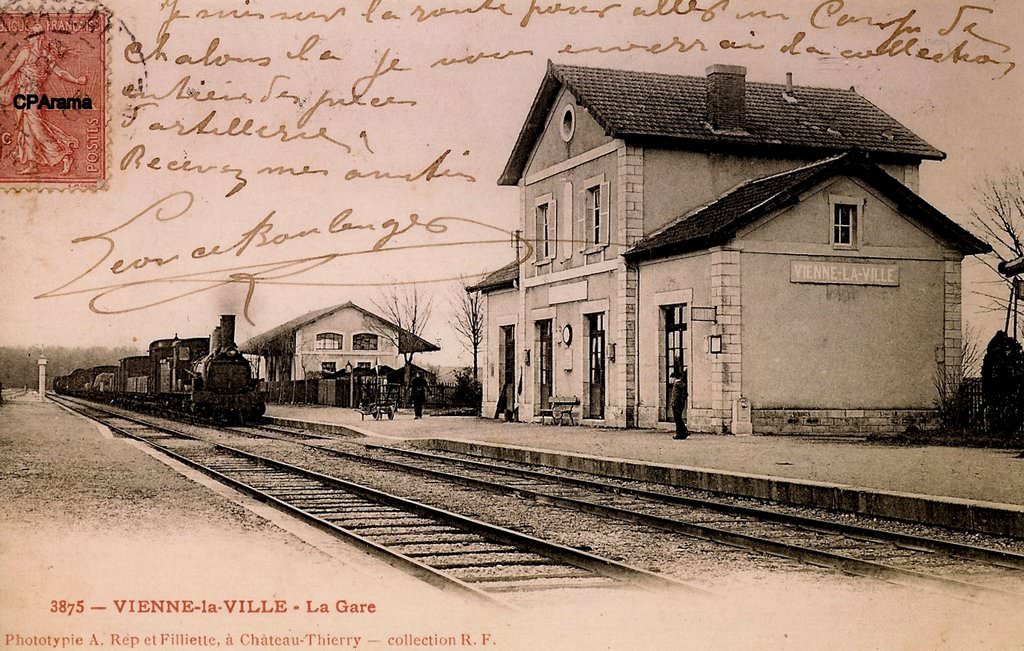 Je suis sur la route pour aller au Camp de
Chalons de là je vous enverrai la collection
entière des pièces
d'artillerie
Recevez mes amitiés
Leonce Boulenger
LIQUE FRANÇAISE
CPArama
POSTES
VIENNE-LA-VILLE
3875 — VIENNE-la-VILLE - La Gare
Phototypie A. Rep et Filliette, à Château-Thierry — collection R. F.